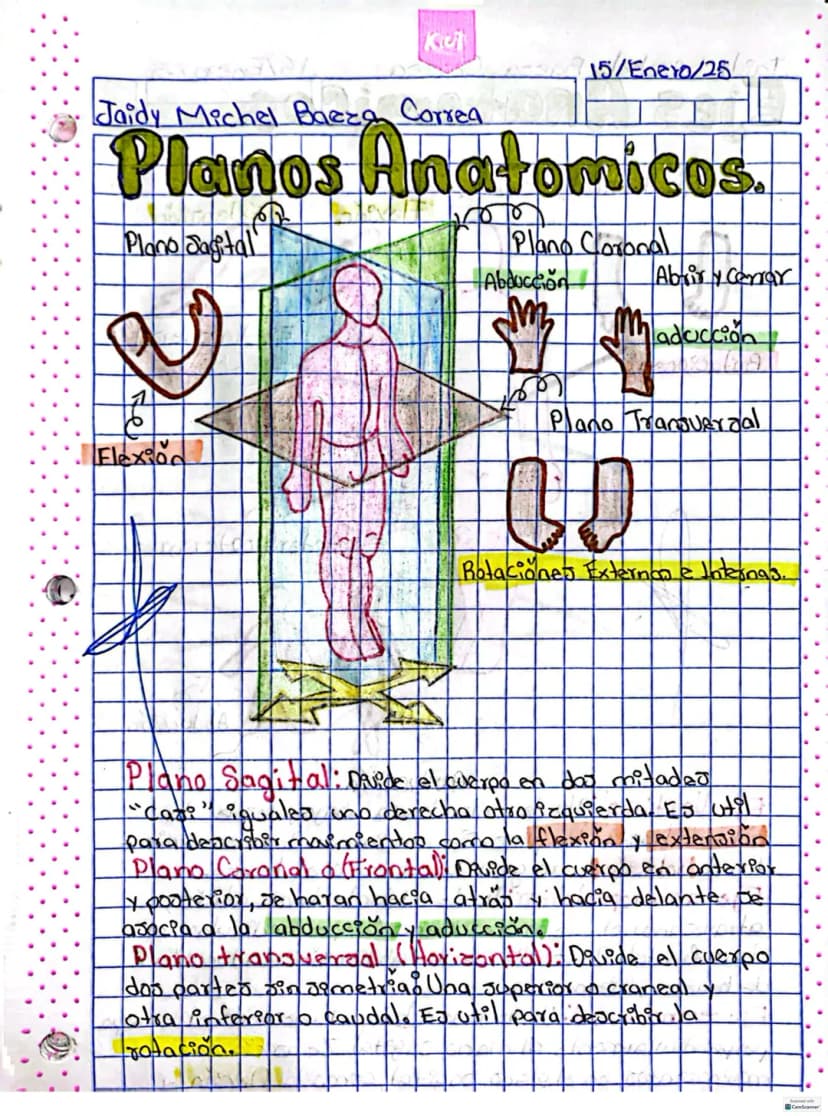 Kut
15/Enero/25
Jaidy Michel Baeza Correa
Planos Anatomicos.
Plano Sagital
Plano Coronal
Abducción
Abrir y Cerrar
aducción
Plano Transversal
Flexión
Rotaciones Externas e Internas.
Plano Sagital: Divide el cuerpo en dos mitades
"Casi" iguales uno derecha otro izquierda. Es util
para describir movimientos como la flexión y extensión
Plano Coronal o (Frontal): Divide el cuerpo en anterior
y posterior, se haran hacia atrás y hacia delante se
asocia a la abducción y aducción.
Plano transversal (Horizontal): Divide el cuerpo
dos partes sin simetria: Una superior o craneal y
otra inferior o caudal. Es util para describir la
rotación.
Scanned with
CamScanner